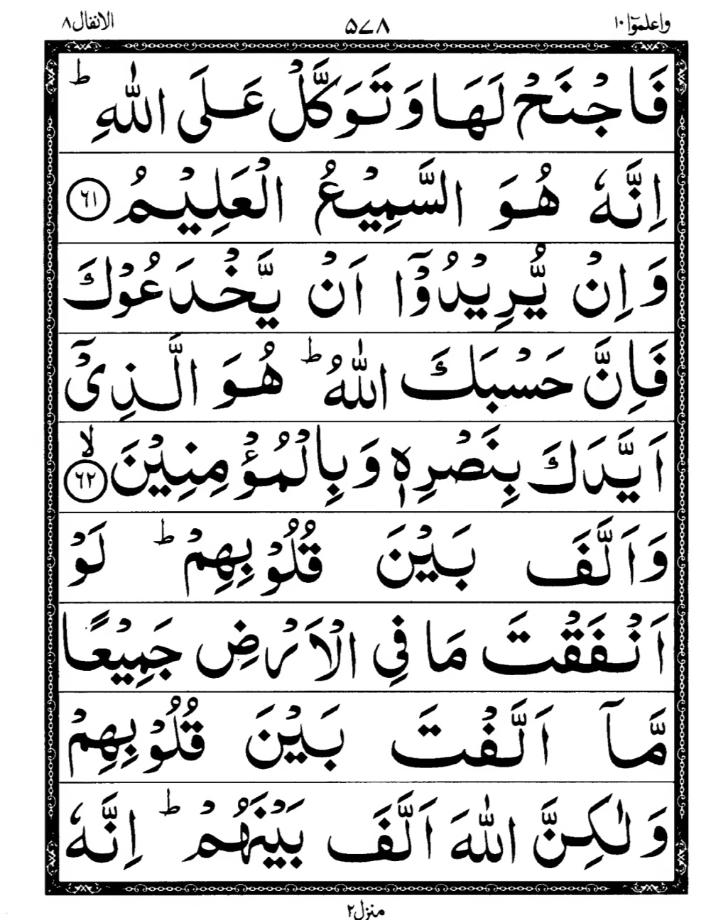 واعلموٓا ١٠ ۵۷۸ الانفال ٨
فَاجْنَحْ لَهَا وَتَوَكَّلْ عَلَى اللّٰهِ ؕ
اِنَّهٗ هُوَ السَّمِيْعُ الْعَلِيْمُ ﴿٦١﴾
وَاِنْ يُّرِيْدُوْٓا اَنْ يَّخْدَعُوْكَ
فَاِنَّ حَسْبَكَ اللّٰهُ ؕ هُوَ الَّذِىْٓ
اَيَّدَكَ بِنَصْرِهٖ وَبِالْمُؤْمِنِيْنَ ۙ﴿٦٢﴾
وَاَلَّفَ بَيْنَ قُلُوْبِهِمْ ؕ لَوْ
اَنْفَقْتَ مَا فِى الْاَرْضِ جَمِيْعًا
مَّاۤ اَلَّفْتَ بَيْنَ قُلُوْبِهِمْ
وَلٰكِنَّ اللّٰهَ اَلَّفَ بَيْنَهُمْ ؕ اِنَّهٗ
منزل ٢